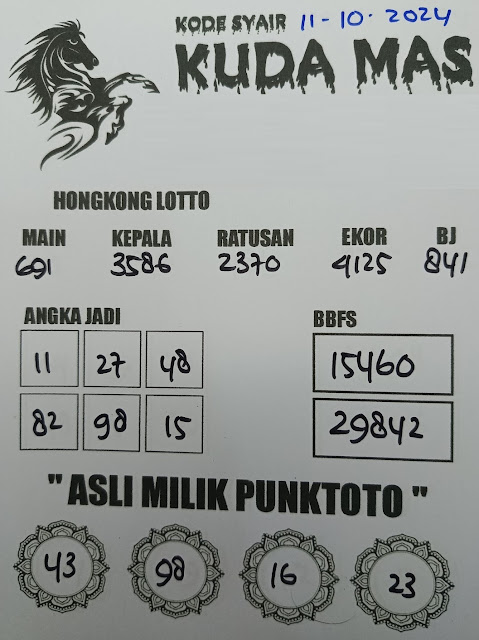 KODE SYAIR 11-10-2024
KUDA MAS
HONGKONG LOTTO
MAIN KEPALA RATUSAN EKOR BJ
691 3586 2370 4125 841
ANGKA JADI BBFS
11 27 48 15460
82 98 15 29842
" ASLI MILIK PUNKTOTO "
43 98 16 23